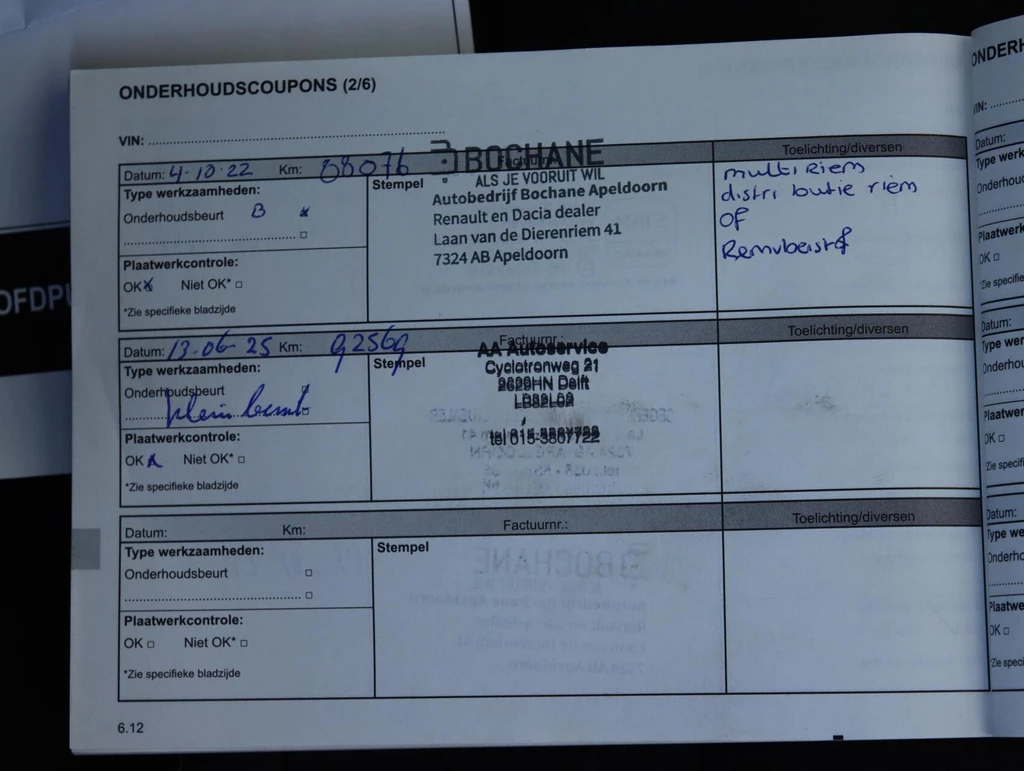 ONDERHOUDSCOUPONS (2/6)
VIN:
Datum: 4-10-22 Km: 88076 Factuurnr.: Toelichting/diversen
Type werkzaamheden:
Onderhoudsbeurt B
Plaatwerkcontrole:
OK Niet OK*
*Zie specifieke bladzijde
Stempel
BOCHANE
ALS JE VOORUIT WIL
Autobedrijf Bochane Apeldoorn
Renault en Dacia dealer
Laan van de Dierenriem 41
7324 AB Apeldoorn
multi Riem
distributie riem
OF
Remvloeistof
Datum: 13-06-25 Km: 92569 Factuurnr.: Toelichting/diversen
Type werkzaamheden:
Onderhoudsbeurt
klein beurt
Plaatwerkcontrole:
OK Niet OK*
*Zie specifieke bladzijde
Stempel
AA Autoservice
Cyclotronweg 21
2629HN Delft
tel 015-3807722
Datum: Km: Factuurnr.: Toelichting/diversen
Type werkzaamheden:
Onderhoudsbeurt
Plaatwerkcontrole:
OK Niet OK*
*Zie specifieke bladzijde
Stempel
6.12
OFDPU
ONDERH
VIN:
Datum:
Type werk
Onderhou
Plaatwerk
OK
*Zie specifie
Datum:
Type wer
Onderhou
Plaatwer
OK
Zie specif
Datum:
Type we
Onderho
Plaatwe
OK
Zie speci